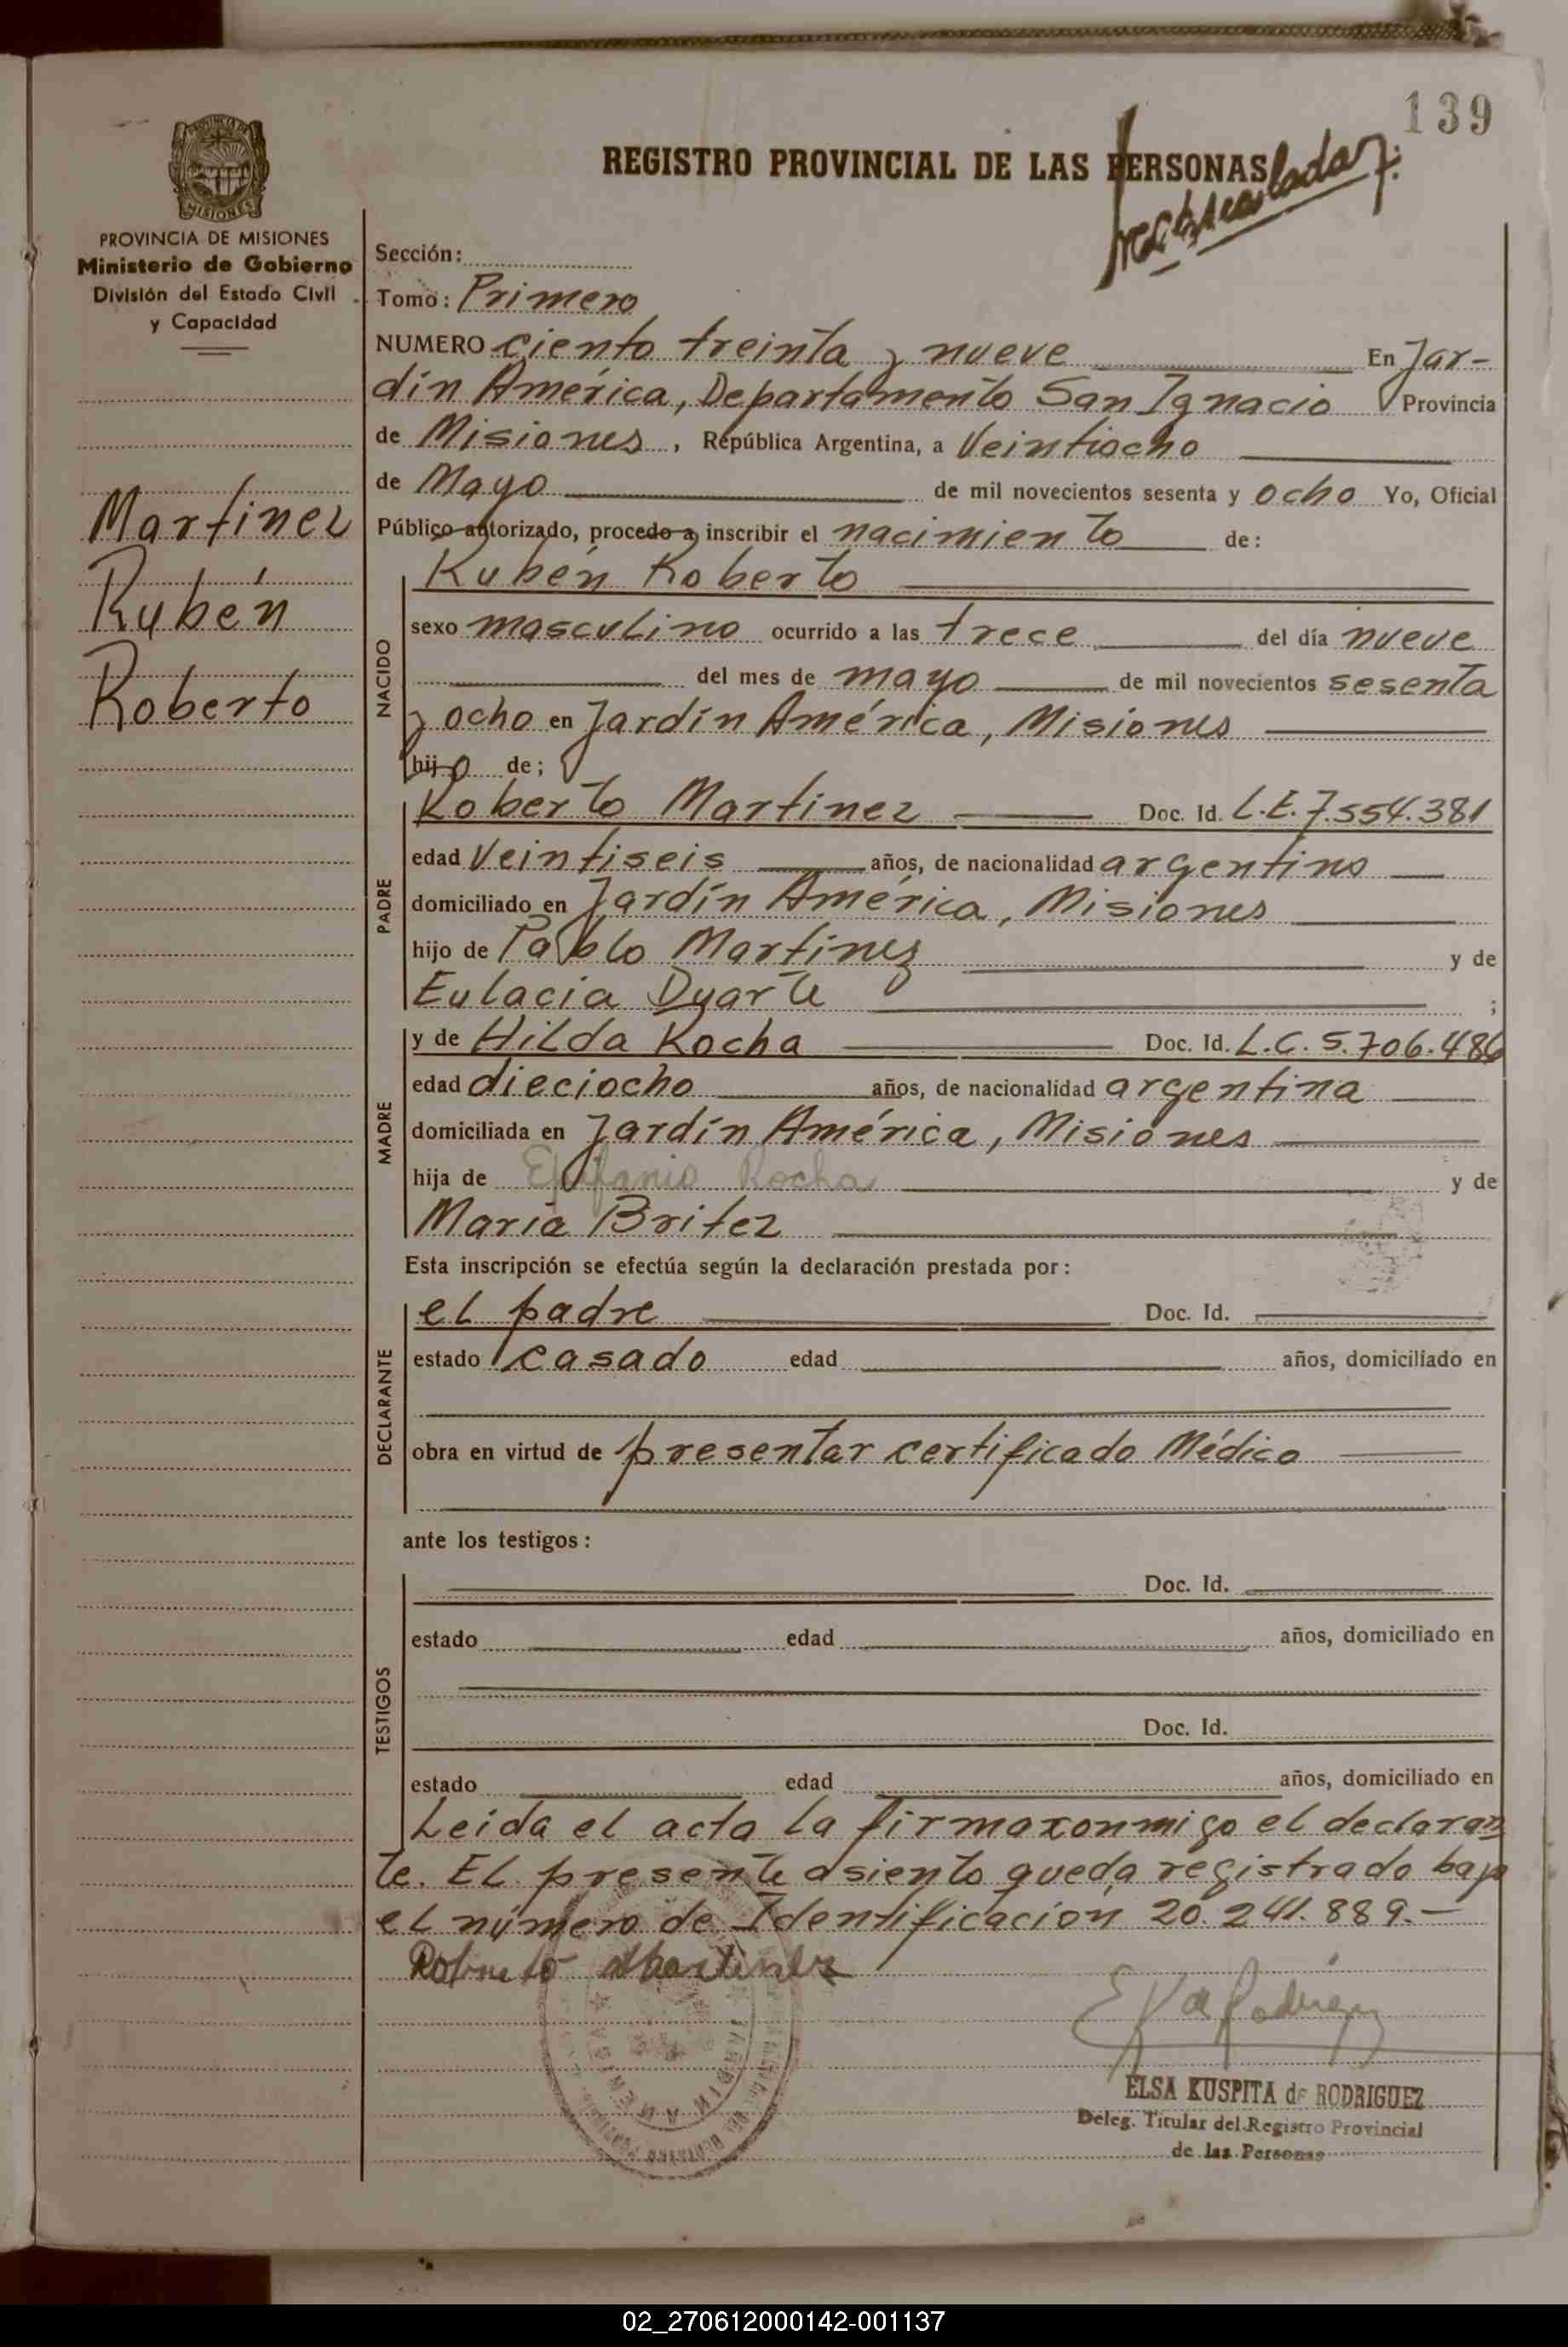 139
REGISTRO PROVINCIAL DE LAS PERSONAS
PROVINCIA DE MISIONES
Ministerio de Gobierno
División del Estado Civil
y Capacidad
Martinez
Rubén
Roberto
Sección:
Tomo: Primero
NUMERO ciento treinta y nueve En Jar-
dín América, Departamento San Ignacio Provincia
de Misiones, República Argentina, a Veintiocho
de Mayo de mil novecientos sesenta y ocho Yo, Oficial
Público autorizado, procedo a inscribir el nacimiento de:
Rubén Roberto
NACIDO
sexo masculino ocurrido a las trece del día nueve
del mes de mayo de mil novecientos sesenta
y ocho en Jardín América, Misiones
hijo de;
PADRE
Roberto Martinez Doc. Id. L.E.7.554.381
edad Veintiseis años, de nacionalidad argentino
domiciliado en Jardín América, Misiones
hijo de Pablo Martinez y de
Eulacia Duarte ;
MADRE
y de Hilda Rocha Doc. Id. L.C. 5.706.486
edad dieciocho años, de nacionalidad argentina
domiciliada en Jardín América, Misiones
hija de Epifanio Rocha y de
María Britez
Esta inscripción se efectúa según la declaración prestada por:
DECLARANTE
el padre Doc. Id.
estado casado edad años, domiciliado en
obra en virtud de presentar certificado Médico
ante los testigos:
TESTIGOS
Doc. Id.
estado edad años, domiciliado en
Doc. Id.
estado edad años, domiciliado en
Leída el acta la firma conmigo el declaran
te. El presente asiento queda registrado bajo
el número de Identificación 20.241.889.-
Roberto Martinez
E K de Rodriguez
ELSA KUSPITA de RODRIGUEZ
Deleg. Titular del Registro Provincial
de las Personas
02_270612000142-001137